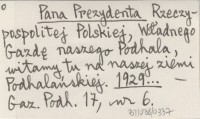 Pana Prezydenta Rzeczy-
pospolitej Polskiej, Władnego
Gazdę naszego Podhala,
witamy tu na naszej ziemi
Podhalańskiej. 1929... —
Gaz. Podh. 17, nr 6.